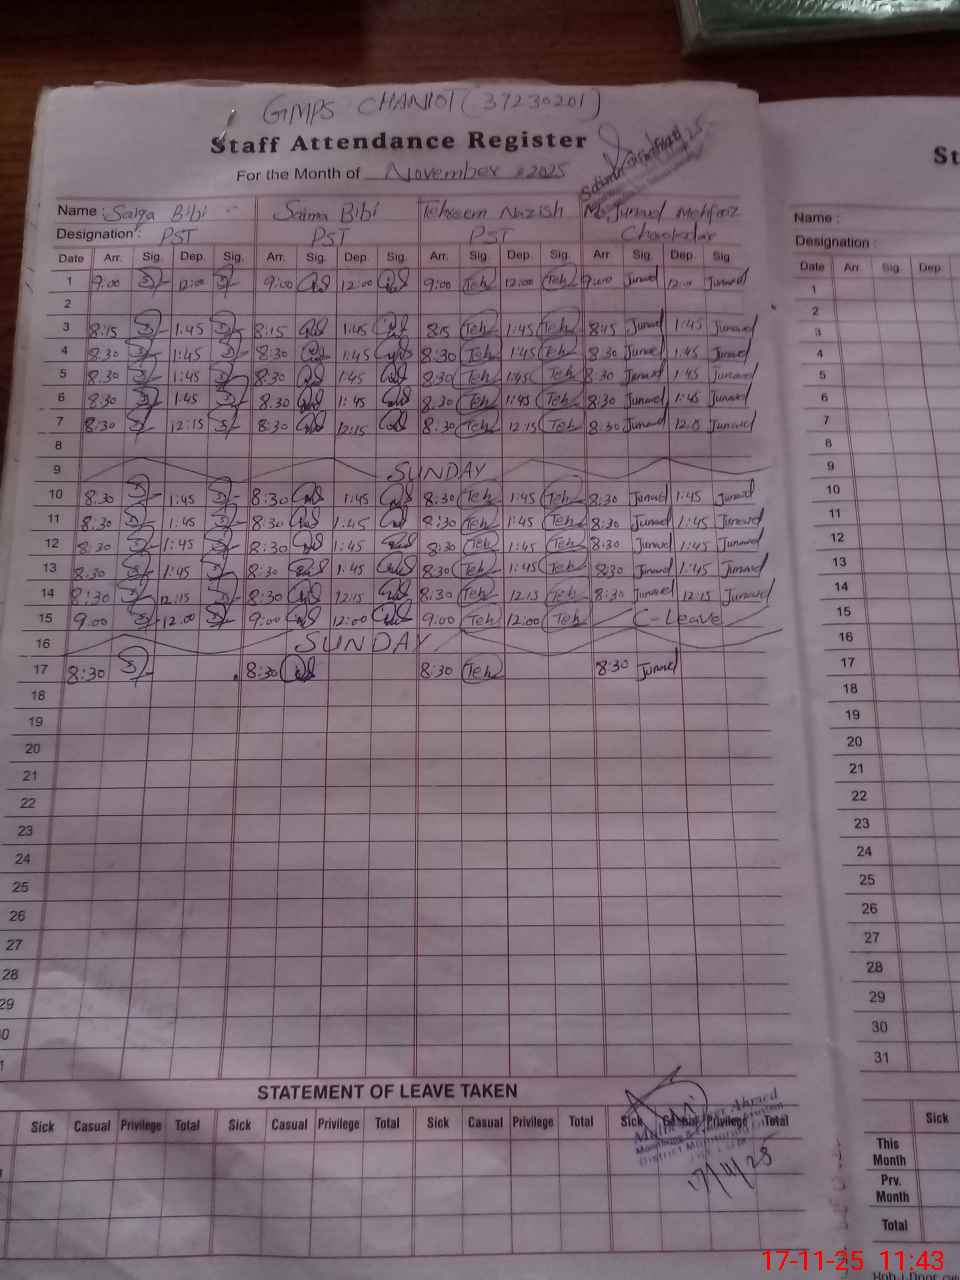 GMPS CHANIOT (37230201)
Staff Attendance Register
For the Month of November 2025
Name : Saiqa Bibi Saima Bibi Tehseem Nazish M. Junaed Mehfooz
Designation : PST PST PST Chowkedar
Date Arr. Sig. Dep. Sig. Arr. Sig. Dep. Sig. Arr. Sig. Dep. Sig. Arr. Sig. Dep. Sig
1 9:00 12:00 9:00 12:00 9:00 Teh 12:00 Teh 9:00 Junaed 12:00 Junaed
2
3 8:15 1:45 8:15 1:45 8:15 Teh 1:45 Teh 8:15 Junaed 1:45 Junaed
4 8:30 1:45 8:30 1:45 8:30 Teh 1:45 Teh 8:30 Junaed 1:45 Junaed
5 8:30 1:45 8:30 1:45 8:30 Teh 1:45 Teh 8:30 Junaed 1:45 Junaed
6 8:30 1:45 8:30 1:45 8:30 Teh 1:45 Teh 8:30 Junaed 1:45 Junaed
7 8:30 12:15 8:30 12:15 8:30 Teh 12:15 Teh 8:30 Junaed 12:15 Junaed
8
9 SUNDAY
10 8:30 1:45 8:30 1:45 8:30 Teh 1:45 Teh 8:30 Junaed 1:45 Junaed
11 8:30 1:45 8:30 1:45 8:30 Teh 1:45 Teh 8:30 Junaed 1:45 Junaed
12 8:30 1:45 8:30 1:45 8:30 Teh 1:45 Teh 8:30 Junaed 1:45 Junaed
13 8:30 1:45 8:30 1:45 8:30 Teh 1:45 Teh 8:30 Junaed 1:45 Junaed
14 8:30 12:15 8:30 12:15 8:30 Teh 12:15 Teh 8:30 Junaed 12:15 Junaed
15 9:00 12:00 9:00 12:00 9:00 Teh 12:00 Teh C-Leave
16 SUNDAY
17 8:30 8:30 8:30 Teh 8:30 Junaed
18
19
20
21
22
23
24
25
26
27
28
29
0
1
STATEMENT OF LEAVE TAKEN
Sick Casual Privilege Total Sick Casual Privilege Total Sick Casual Privilege Total Sick Casual Privilege Total
Ahmed
District Monitoring
17/11/25
St
Name :
Designation :
Date Arr. Sig. Dep.
1
2
3
4
5
6
7
8
9
10
11
12
13
14
15
16
17
18
19
20
21
22
23
24
25
26
27
28
29
30
31
Sick
This Month
Prv. Month
Total
17-11-25 11:43